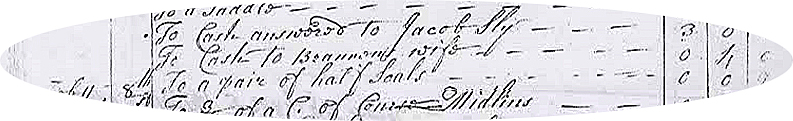 To a Saddle
To Cash answered to Jacob Sly 3 0
To Cash to Beamons wife 0 4 0
8 To a pair of half Soals 0 0 0
To of a C. of Course Midlins